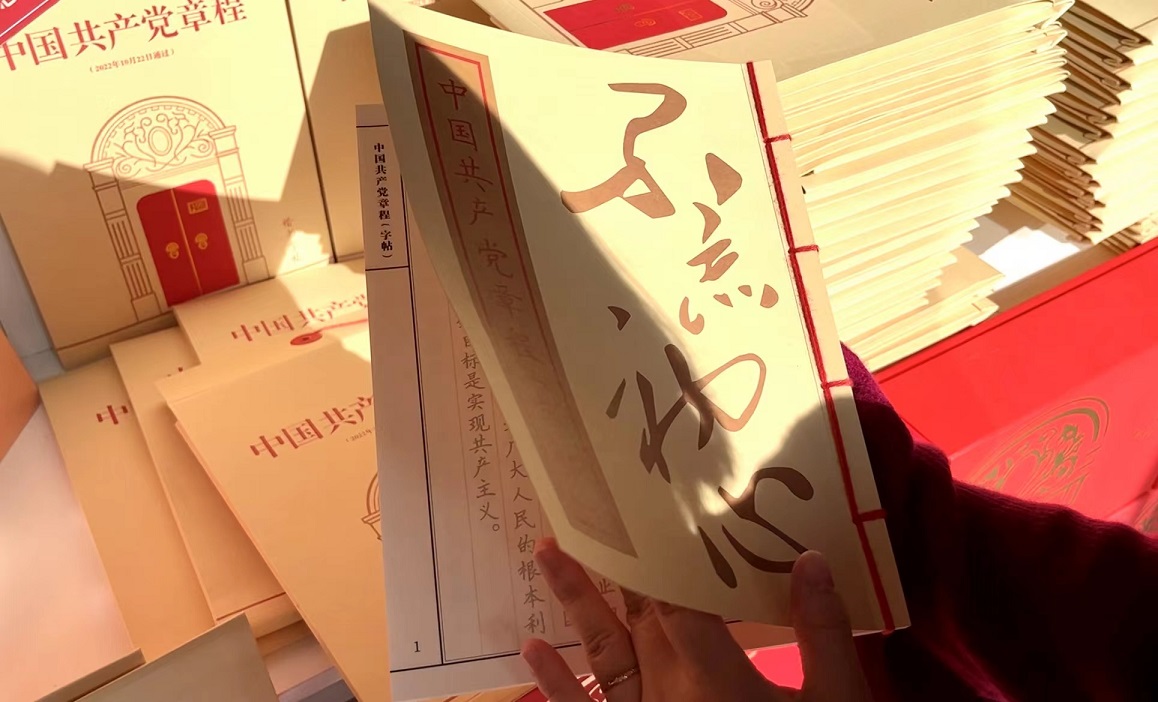 中国共产党章程
(2022年10月22日通过)
中国共产党
中
中国共产
中国共产党章程(字帖)
中国共产党章程
不忘初心
标是实现共产主义。
大人民的根本利
1